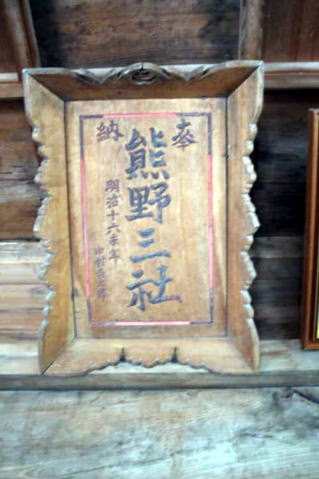 奉納
熊野三社
明治十六未年